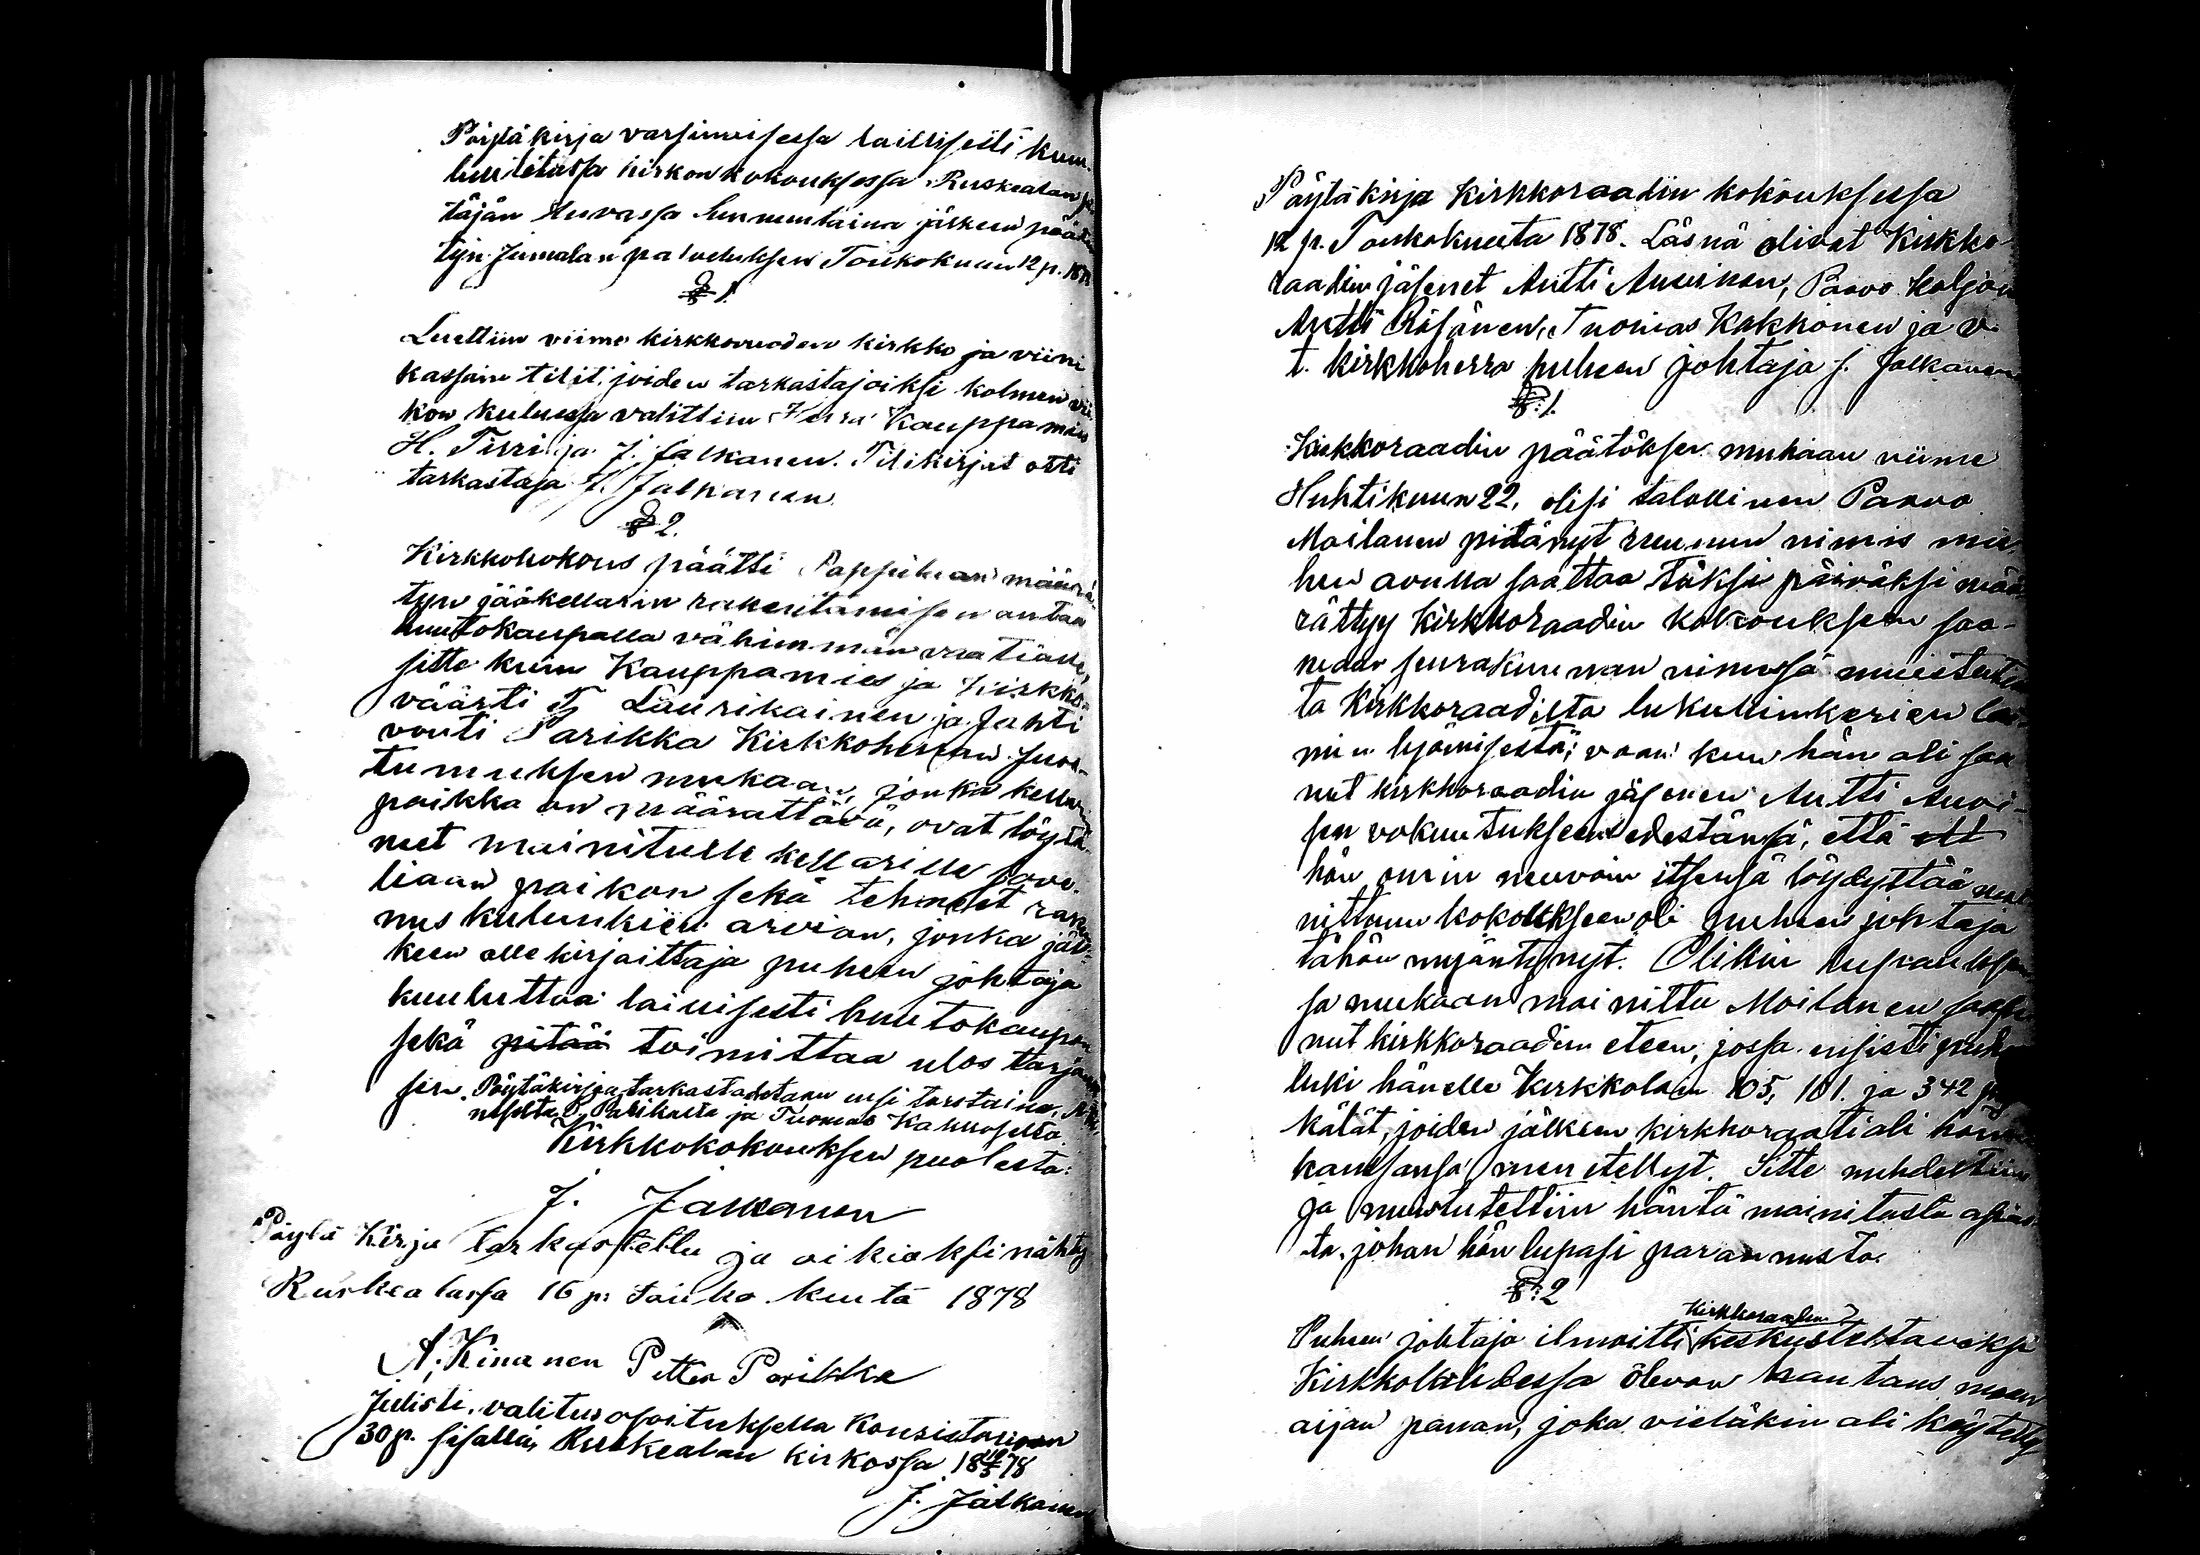 Pöytäkirja varsinaisessa laillisesti kuu-
lutetussa kirkonkokouksessa Ruskealan pi
täjän tuvassa Sunnuntaina jälkeen pääte
tyn Jumalan palveluksen Toukokuun 12 p. 1878
§ 1.
Luettiin viime kirkkovuoden kirkko ja viini
kassain tilit, joiden tarkastajoiksi kolmen vii
kon kuluessa valittiin Herra Kauppamies
H. Tirri ja J. Jalkanen. Tilikirjat otti
tarkastaja J. Jalkanen.
§ 2.
Kirkkokokous päätti Pappilaan määrä-
tyn jääkellarin rakentamisen antaa
huutokaupalla vähimmän vaativalle,
sitte kuin Kauppamies ja Kirkko-
väärti Laurikainen ja Jahti
vouti Parikka Kirkkoherran suos-
tumuksen mukaan, jonka kellarin
paikka on määrättävä, ovat löytä-
neet mainitulle kellarille sove-
liaan paikan sekä tehneet raken
nus kulunkien arvion, jonka jäl-
keen allekirjoittaja puheen johtaja
kuuluttaa laillisesti huutokaupan
sekä pitää toimittaa ulos tarjouk
sen. Pöytäkirja tarkastadetaan ensi torstaina,
P. Parikasta ja Tuomas Kakkoselta.
Kirkkokokouksen puolesta:
J. Jalkanen
Pöytä Kirja tarkastettu ja oikiaksi nähty
Ruskealassa 16 p: Touko kuuta 1878
A. Kinanen Petter Parikka
Julisti, valitus osoituksella Konsistorioon
30 p. sisällä, Ruskealan kirkossa 18 19/5 78
J. Jalkanen
Pöytäkirja Kirkkoraadin kokouksessa
12 p. Toukokuuta 1878. Läsnä olivat Kirkko
raadin jäsenet Antti Auvinen, Paavo Koljonen
Antti Räsänen, Tuomas Kakkonen ja v.
t. kirkkoherra puheen johtaja J. Jalkanen
§: 1.
Kirkkoraadin päätöksen mukaan viime
Huhtikuun 22, olisi talollinen Paavo
Moilanen pitänyt ruunun nimis mie
hen avulla saattaa täksi päiväksi mää
rättyy Kirkkoraadin kokouksen saa-
maan seurakunnan nimessä muistutus
ta Kirkkoraadilta lukukinkerien lai
min lyömisestä; vaan kun hän oli saa
nut kirkkoraadin jäsenen Antti Auvi-
sen vakuutukseen edestänsä, että ett
hän omin neuvoin itsensä löydyttää mai
nittuun kokoukseen oli puheen johtaja
tähän myöntynyt. Olikin lupauksen
sa mukaan mainittu Moilanen saapu
nut kirkkoraadin eteen, jossa ensisti puhe
luki hänelle Kirkkolain 105, 101. ja 342 py
kälät, joiden jälkeen kirkkoraati oli hänen
kanssansa menetellyt. Sitte nuhdeltiin
ja muistutettiin häntä mainitusta asias
ta, johan hän lupasi parannusta.
§: 2
Puheen johtaja ilmoitti Kirkkoraadin keskusteltavaksi
Kirkkolaulussa olevan kautans
aijan panan, joka vieläkin oli käytetty